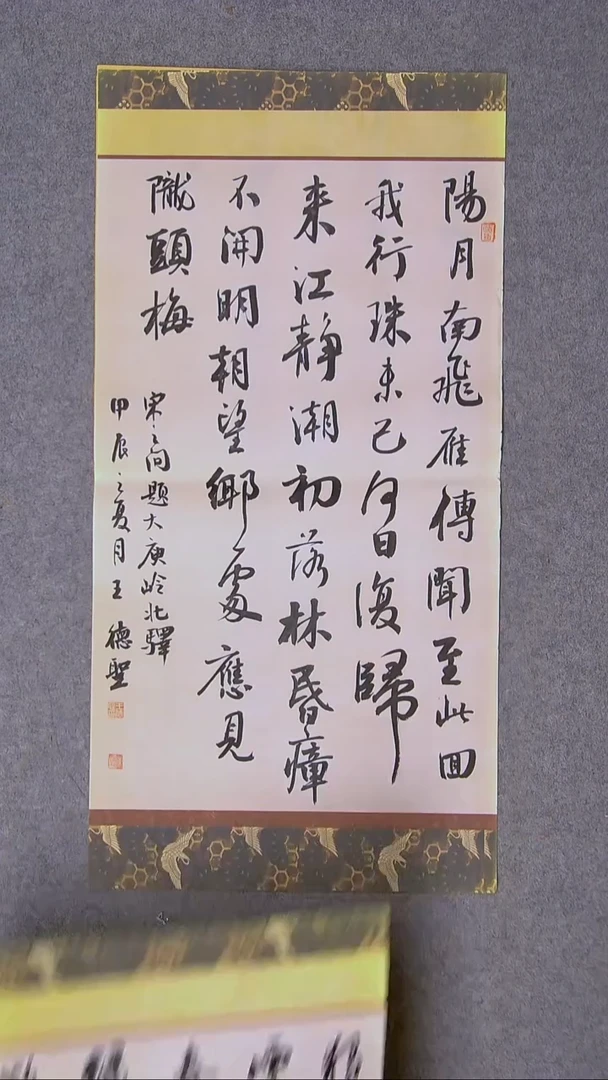 陽月南飛雁傳聞至此回
我行珠未已何日復歸
来江静潮初落林昏瘴
不開明朝望鄉處應見
隴頭梅
宋之問題大庾岭北驛
甲辰之夏月王德聖